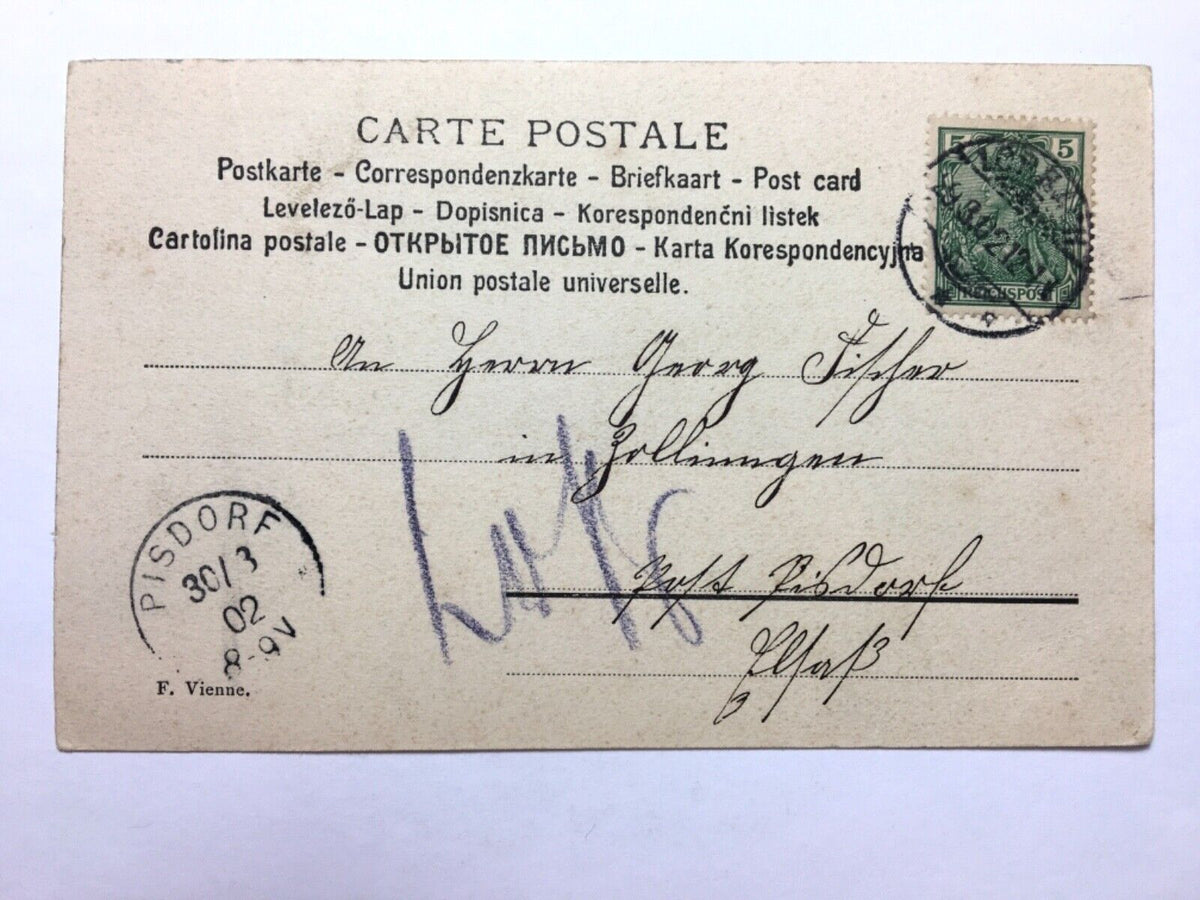 CARTE POSTALE
Postkarte - Correspondenzkarte - Briefkaart - Post card
Levelező-Lap - Dopisnica - Korespondenčni listek
Cartolina postale - ОТКРЫТОЕ ПИСЬМО - Karta Korespondencyjna
Union postale universelle.
5 5
REICHSPOST
An Herrn Georg Fischer
in Zollingen
Post Pisdorf
Elsaß
PISDORF
30/3
02
8-9V
F. Vienne.